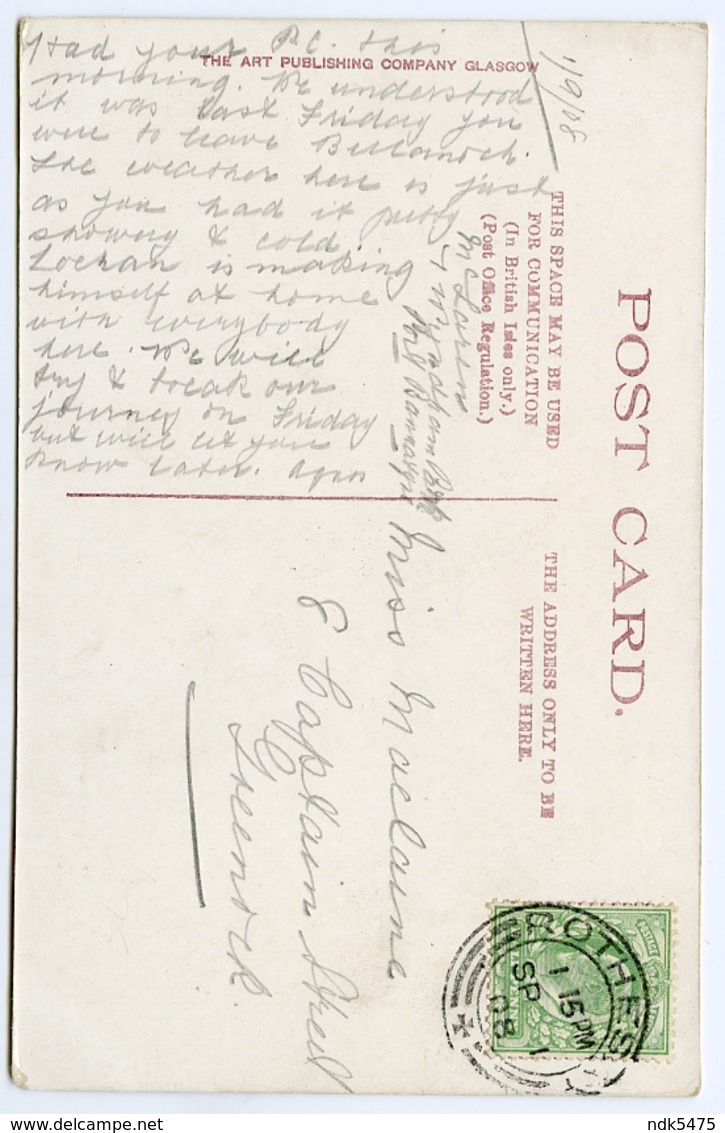 THE ART PUBLISHING COMPANY GLASGOW
1/9/08
Had your P.C. this
morning. We understood
it was last Friday you
were to leave Bellanoch.
The weather here is just
as you had it pretty
showery & cold
Lochan is making
himself at home
with everybody
here. We will
try & break our
journey on Friday
but will let you
know later. Agnes
McLaren
Port Bannatyne
POST CARD.
THIS SPACE MAY BE USED
FOR COMMUNICATION
(In British Isles only.)
(Post Office Regulation.)
THE ADDRESS ONLY TO BE
WRITTEN HERE.
Miss Maclaine
8 Captain Street
Greenock.
POSTAGE
ROTHESAY
1 15PM
SP 1
08
ndk5475